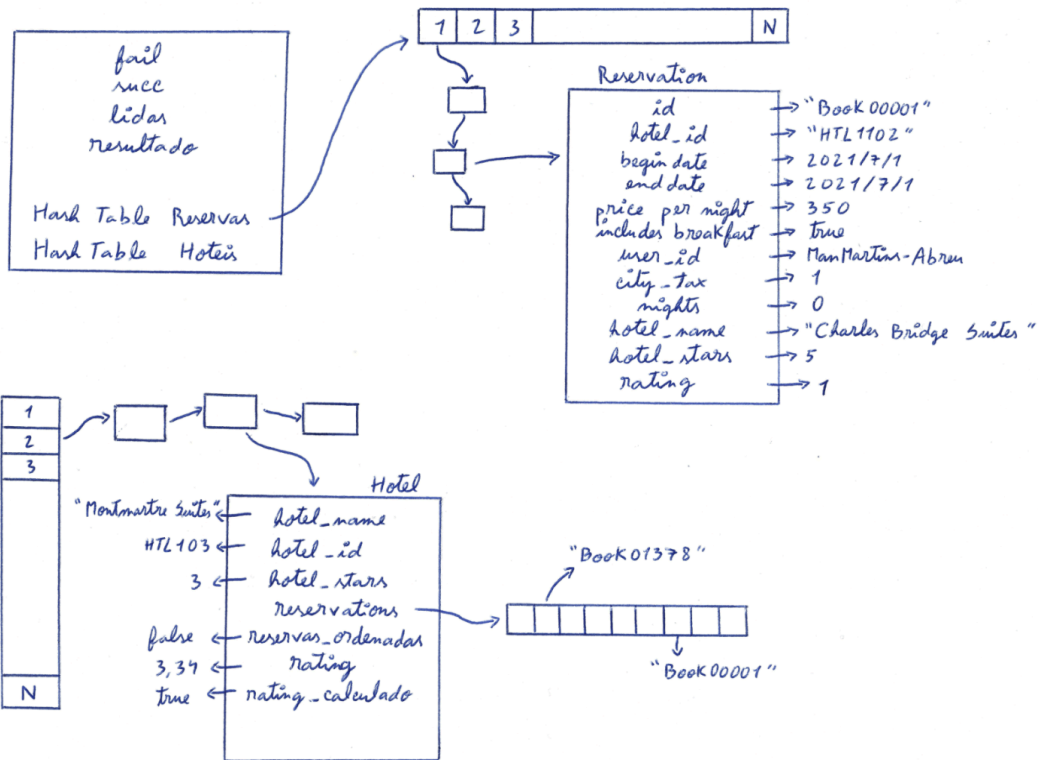 fail
succ
lidas
resultado
Hash Table Reservas
Hash Table Hoteis
1 2 3 N
Reservation
id → "Book00001"
hotel_id → "HTL1102"
begin date → 2021/7/1
end date → 2021/7/1
price per night → 350
includes breakfast → true
user_id → ManMartins-Abreu
city_tax → 1
nights → 0
hotel_name → "Charles Bridge Suites"
hotel_stars → 5
rating → 1
1
2
3
N
Hotel
"Montmartre Suites" ← hotel_name
HTL103 ← hotel_id
3 ← hotel_stars
reservations
false ← reservas_ordenadas
3,34 ← rating
true ← rating_calculado
"Book01378"
"Book00001"